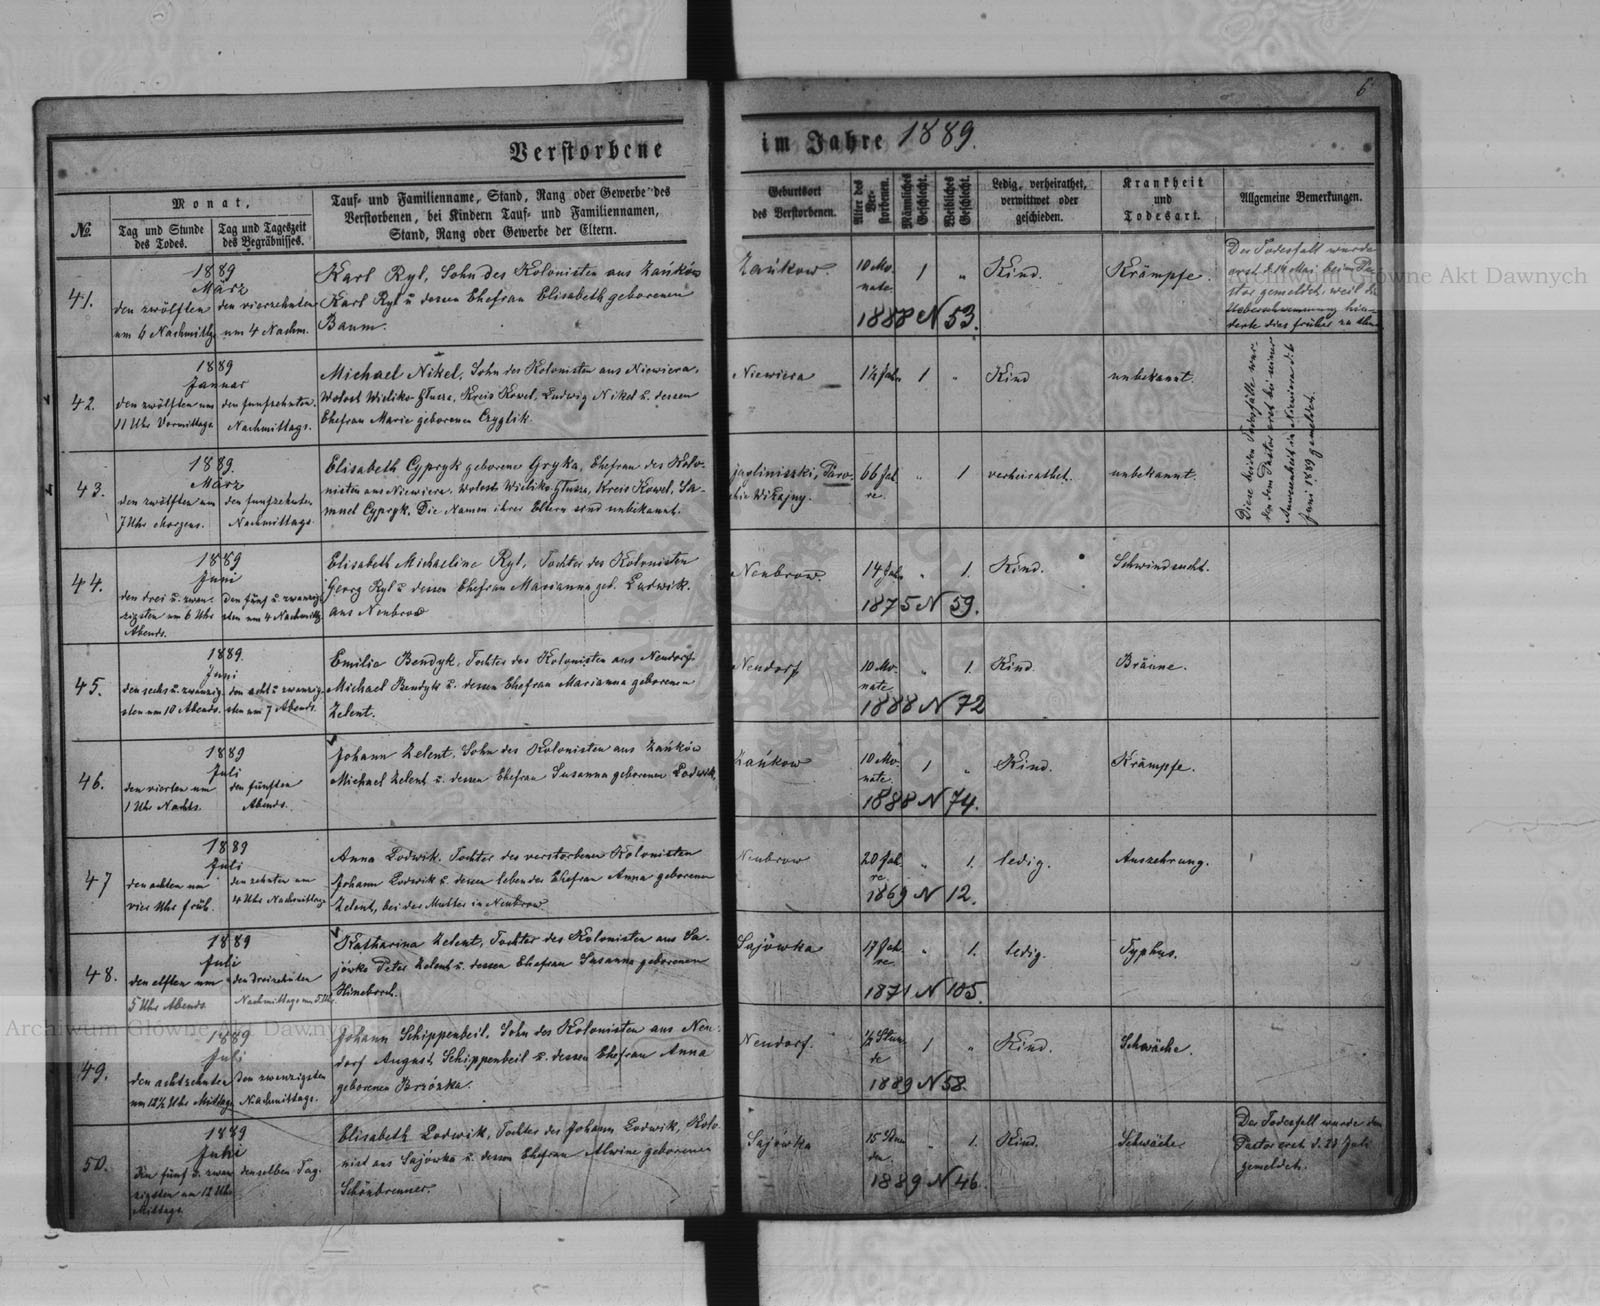 6
Verstorbene
im Jahre 1889.
№.
Monat,
Tag und Stunde
des Todes.
Tag und Tageszeit
des Begräbnisses.
Tauf- und Familienname, Stand, Rang oder Gewerbe des
Verstorbenen, bei Kindern Tauf- und Familiennamen,
Stand, Rang oder Gewerbe der Eltern.
Geburtsort
des Verstorbenen.
Alter des
Ver-
storbenen.
Männliches
Geschlecht.
Weibliches
Geschlecht.
Ledig, verheirathet,
verwittwet oder
geschieden.
Krankheit
und
Todesart.
Allgemeine Bemerkungen.
41.
1889
März
den zwölften
um 6 Nachmittg.
den vierzehnten
um 4 Nachm.
Karl Ryl, Sohn des Kolonisten aus Zańków
Karl Ryl u dessen Ehefrau Elisabeth geborenen
Baum.
Zańkow.
10 Mo-
nate
1
"
Kind.
Krämpfe.
1888 N 53.
Der Todesfall wurde
erst d. 14 Mai beim Pa-
stor gemeldet, weil die
Ueberschwemmung hin-
derte dies früher zu thun
42.
1889
Januar
den zwölften um
11 Uhr Vormittags
den funfzehnten
Nachmittags.
Michael Nikel, Sohn des Kolonisten aus Niewiera,
Wolost Wieliko-Głusza, Kreis Kowel, Ludwig Nikel u. dessen
Ehefrau Marie geborenen Czyglik.
Niewiera
1
"
Kind
unbekannt.
Diese beiden Todesfälle wur-
den dem Pastor erst bei seiner
Anwesenheit in Niewiera d. 6
Juni 1889 gemeldet.
43.
1889.
März
den zwölften um
7 Uhr Morgens.
den funfzehnten
Nachmittags.
Elisabeth Cypryk geborene Gryka, Ehefrau des Kolo-
nisten aus Niewiera, Wolost Wieliko-Głusza, Kreis Kowel, Sa-
muel Cypryk. Die Namen ihrer Eltern sind unbekannt.
66 Jah
re.
"
1
verheirathet.
unbekannt.
44.
1889
Juni
den drei u. zwan-
zigsten um 6 Uhr
Abends.
den fünf u zwanzig
sten um 4 Nachmittg.
Elisabeth Michaeline Ryl, Tochter des Kolonisten
Georg Ryl u dessen Ehefrau Marianna geb. Ludwik.
aus Neubrow
Neubrow.
14 Jah.
"
1.
Kind.
Schwindsucht.
1875 N 59.
45.
1889.
Juni
den sechs u. zwanzig
sten um 10 Abends.
den acht u zwanzig
sten um 7 Abends.
Emilie Bendyk, Tochter des Kolonisten aus Neudorf
Michael Bendyk u. dessen Ehefrau Marianna geborenen
Zelent.
Neudorf
10 Mo-
nate
"
1.
Kind.
Bräune.
1888 N 72
46.
1889
Juli
den vierten um
1 Uhr Nachts.
den fünften
Abends.
Johann Zelent, Sohn des Kolonisten aus Zańków
Michael Zelent u. dessen Ehefrau Susanna geborenen Lodwik
Zańkow
10 Mo-
nate.
1
"
Kind.
Krämpfe.
1888 N 74.
47
1889
Juli
den achten um
vier Uhr früh.
den zehnten um
4 Uhr Nachmittags
Anna Lodwik, Tochter des verstorbenen Kolonisten
Johann Lodwik u. dessen lebender Ehefrau Anna geborenen
Zelent, bei der Mutter in Neubrow
Neubrow
20 Jah
re.
"
1.
ledig.
Auszehrung.
1869 N 12.
48.
1889
Juli
den elften um
5 Uhr Abends
den dreizehnten
Nachmittags um 5 Uhr.
Katharina Zelent, Tochter des Kolonisten aus Sa-
jówka Peter Zelent u. dessen Ehefrau Susanna geborenen
Hineborch.
Sajówka
17 Jah
re.
"
1.
ledig.
Typhus.
1871 N 105.
49.
1889
Juli
den achtzehnten
um 12½ Uhr Mittags
den zwanzigsten
Nachmittags.
Johann Schippenbeil, Sohn des Kolonisten aus Neu-
dorf August Schippenbeil u. dessen Ehefrau Anna
geborenen Brzózka.
Neudorf.
½ Stun-
de
1
"
Kind.
Schwäche.
1889 N 58.
50.
1889
Juni
den fünf u. zwan
zigsten um 12 Uhr
Mittags.
denselben Tag.
Elisabeth Lodwik, Tochter des Johann Lodwik, Kolo-
nist aus Sajówka u. dessen Ehefrau Alwine geborenen
Schönbrenner.
Sajówka
15 Stun
den.
"
1.
Kind.
Schwäche
1889 N 46.
Der Todesfall wurde dem
Pastor erst d. 23 Juli
gemeldet.
Archiwum Główne Akt Dawnych
Archiwum Główne Akt Dawnych